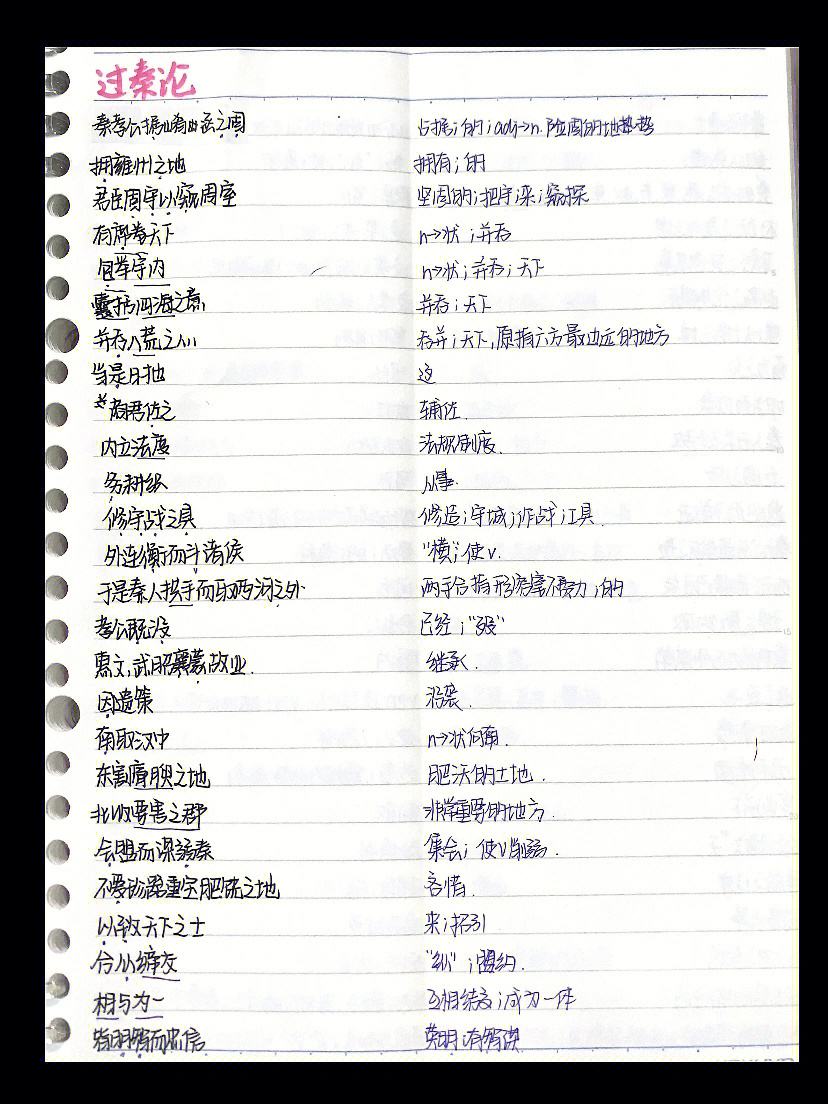 过秦论
秦孝公据崤函之固 占据；的；adj→n.险固的地势
拥雍州之地 拥有；的
君臣固守以窥周室 坚固的；把守；来；窥探
有席卷天下 n→状；并吞
包举宇内 n→状；并吞；天下
囊括四海之意 并吞；天下
并吞八荒之心 吞并；天下,原指六方最边远的地方
当是时也 这
商君佐之 辅佐.
内立法度 法规制度.
务耕织 从事.
修守战之具 修造；守城；作战；工具.
外连衡而斗诸侯 "横"；使v.
于是秦人拱手而取西河之外 两手合抱形容毫不费力；的
孝公既没 已经；"殁"
惠文,武昭襄蒙故业. 继承.
因遗策 沿袭.
南取汉中 n→状向南.
东割膏腴之地 肥沃的土地.
北收要害之郡 非常重要的地方.
会盟而谋弱秦 集会；使v削弱.
不爱珍器重宝肥饶之地 吝惜.
以致天下之士 来；招引
合从缔交 "纵"；盟约.
相与为一 互相结交；成为一体
皆明智而忠信 英明；有智谋